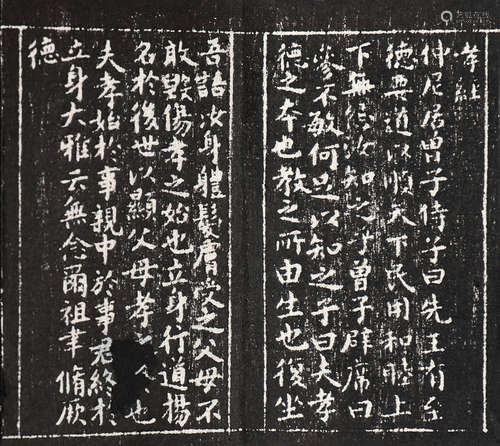 孝経
仲尼居曾子侍子曰先王有至
德要道以順天下民用和睦上
下無怨汝知之乎曾子辟席曰
參不敏何足以知之子曰夫孝
德之本也教之所由生也復坐
吾語汝身體髮膚受之父母不
敢毀傷孝之始也立身行道揚
名於後世以顯父母孝之也
夫孝始於事親中於事君終於
立身大雅云無念爾祖聿脩厥
德